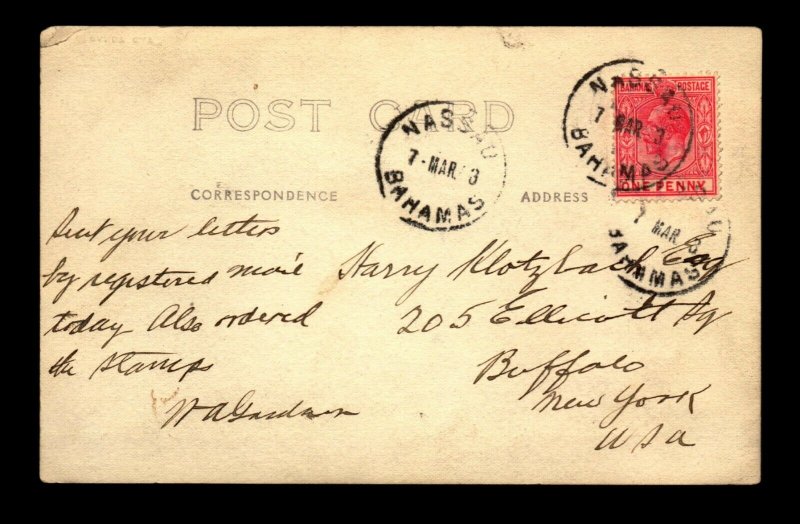 POST CARD
CORRESPONDENCE
ADDRESS
NASSAU
7 MAR 3
BAHAMAS
NASSAU
7 MAR 3
BAHAMAS
BAHAMAS POSTAGE
ONE PENNY
7 MAR
BAHAMAS
Sent your letters
by registered mail
today Also ordered
the stamps
WA Gardner
Harry Klotzbach Esq
205 Ellicott Sq
Buffalo
New York
USA